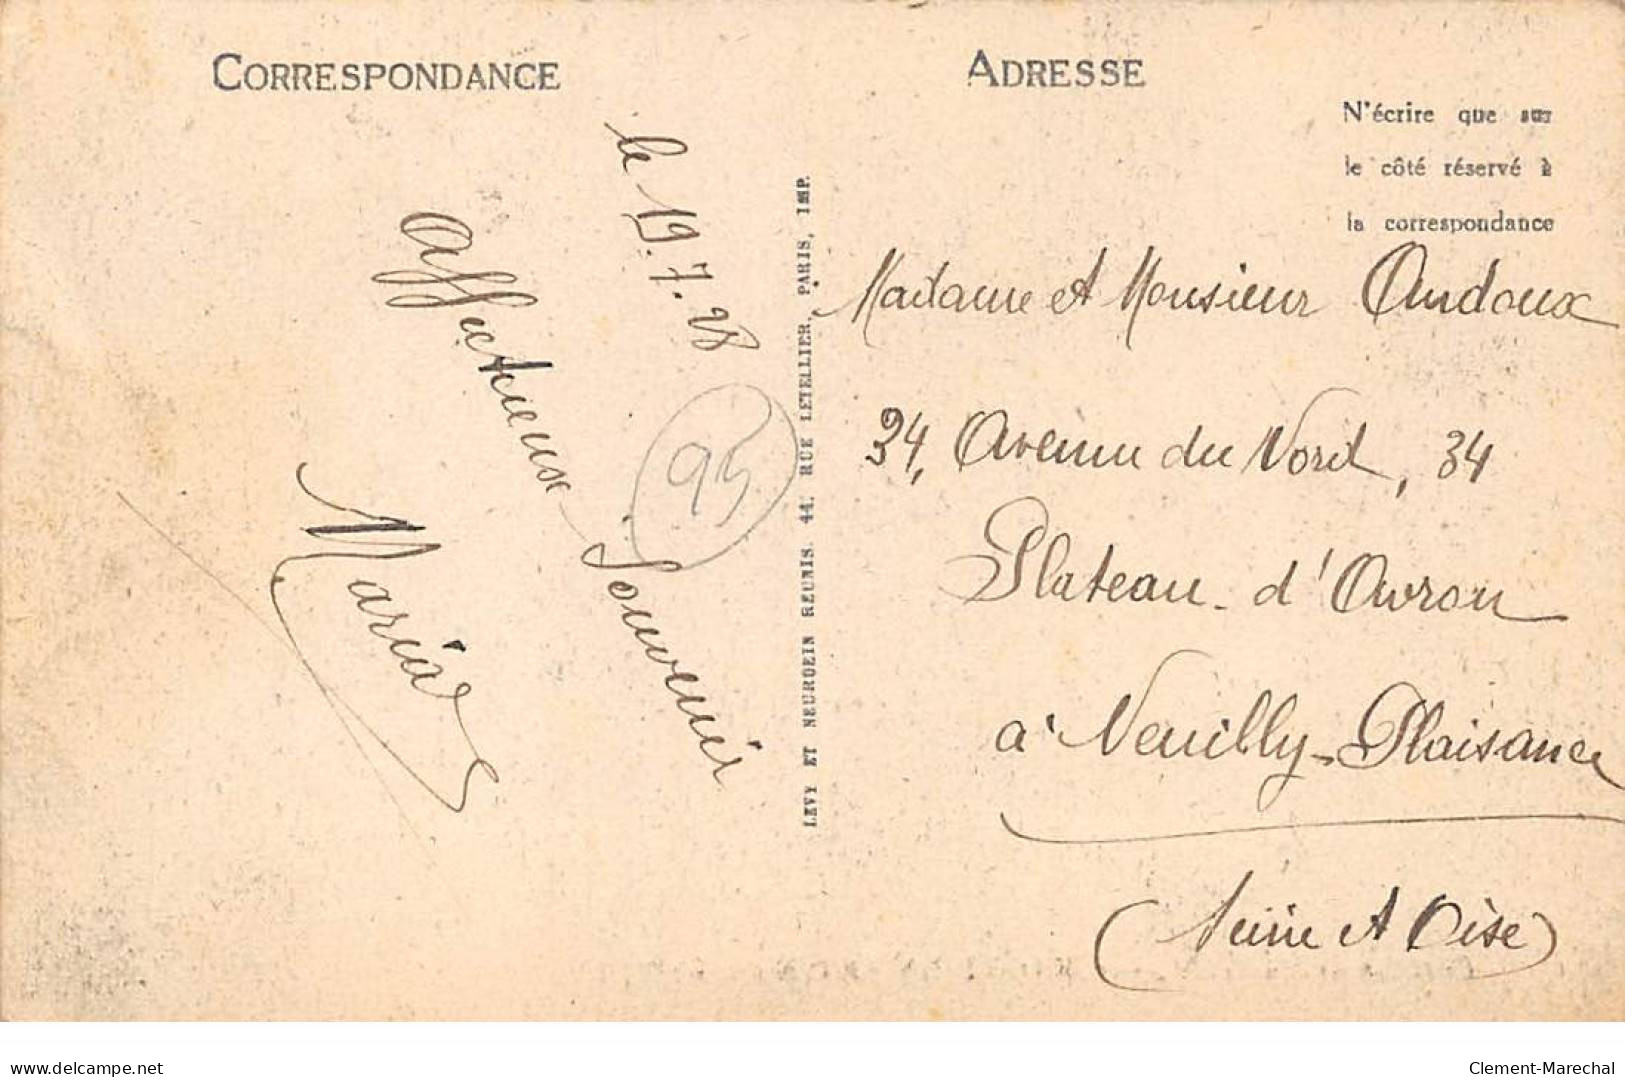 CORRESPONDANCE
le 19.7.28
Affectueux Souvenir
Maria
95
LEVY ET NEURDEIN REUNIS. 44. RUE LETELLIER, PARIS, IMP.
ADRESSE
N'écrire que sur
le côté réservé à
la correspondance
Madame et Monsieur Audoux
34, Avenue du Nord, 34
Plateau d'Avron
à Neuilly-Plaisance
(Seine et Oise)
delcampe.net
Clement-Marechal